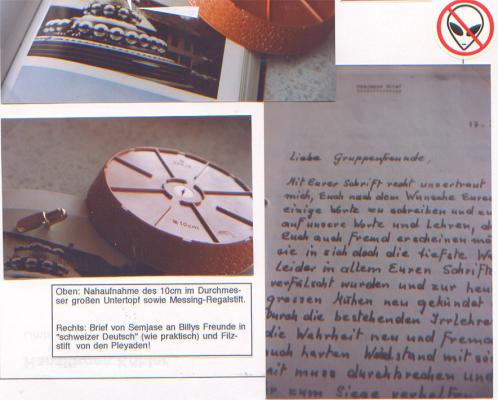 Oben: Nahaufnahme des 10cm im Durchmes-
ser großen Untertopf sowie Messing-Regalstift.
Rechts: Brief von Semjase an Billys Freunde in
"schweizer Deutsch" (wie praktisch) und Filz-
stift von den Plejaden!
Semjase Brief
Liebe Gruppenfreunde,
Mit Eurer Schrift recht unvertraut
mich, Euch nach dem Wunsche Eures
einige Worte zu schreiben und
auf unsere Worte und Lehren,
Euch auch fremd erscheinen
sie in sich doch die tiefste
Leider in allem Euren Schrift
verfälscht wurden und zur heu
grossen Mühen neu gekündet
Durch die bestehenden Irrlehre
die Wahrheit neu und fremd
auch harten
muss durchbrechen und
zum Siege verhelfen